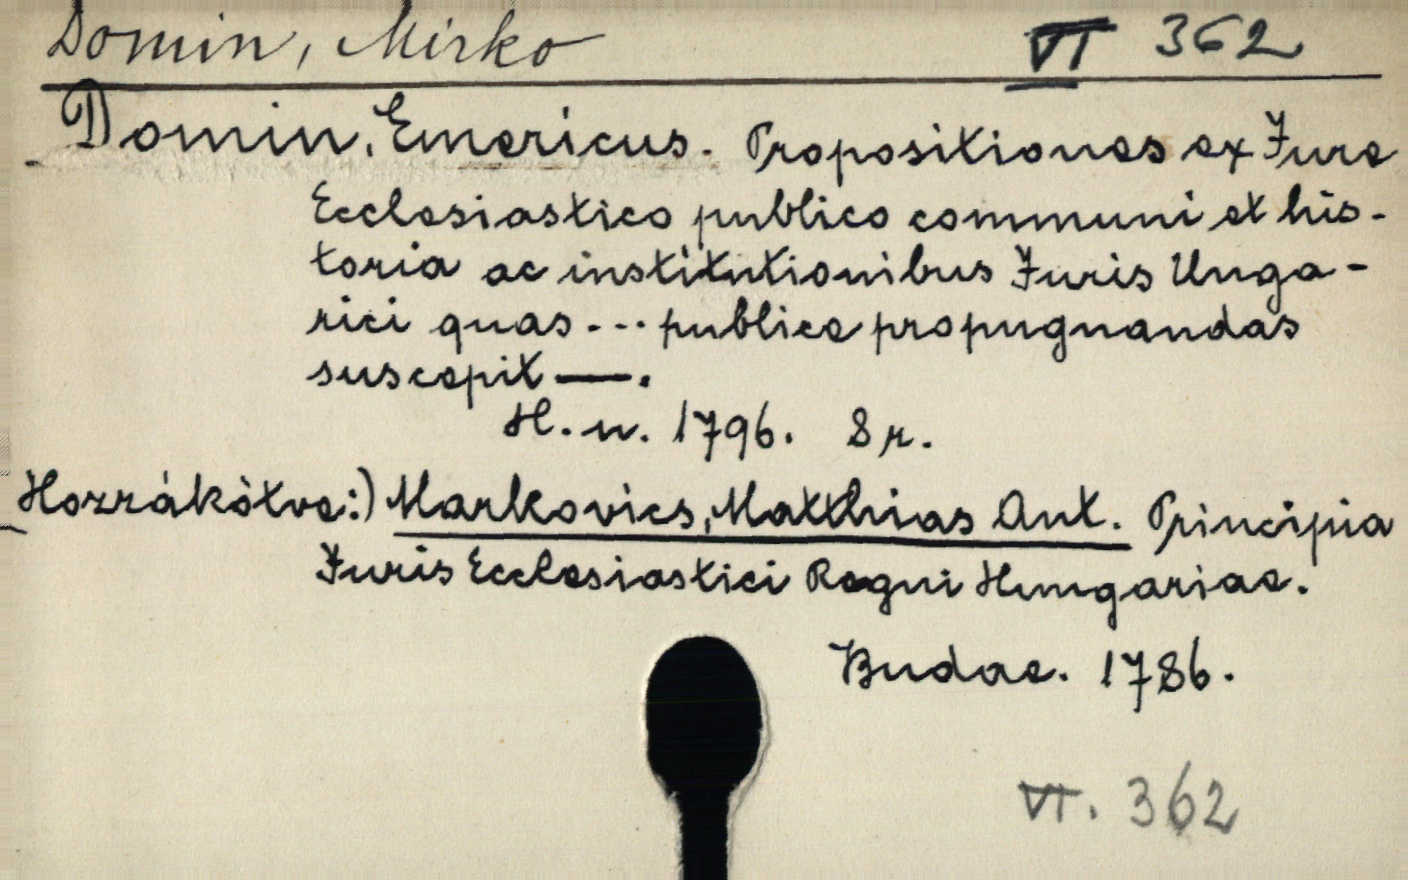 Domin, Mirko VI 362
Domin, Emericus. Propositiones ex Jure
Ecclesiastico publico communi et his-
toria ac institutionibus Juris Unga-
rici quas... publice propugnandas
suscepit —.
H. n. 1796. 8 r.
Hozzákötve:) Markovics, Matthias Ant. Principia
Juris Ecclesiastici Regni Hungariae.
Budae. 1786.
VI. 362